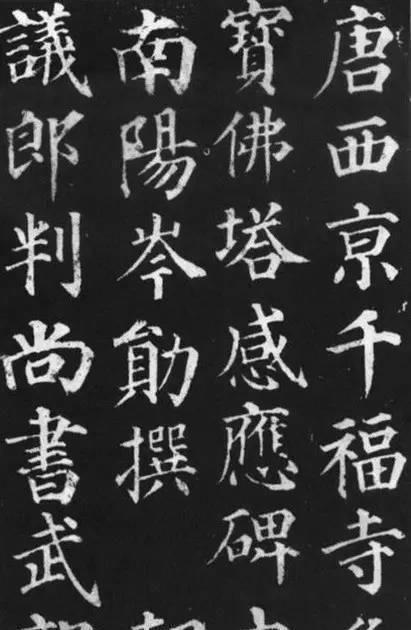 唐西亰千福寺
寶佛塔感應碑
南陽岑勛撰
議郎判尚書武